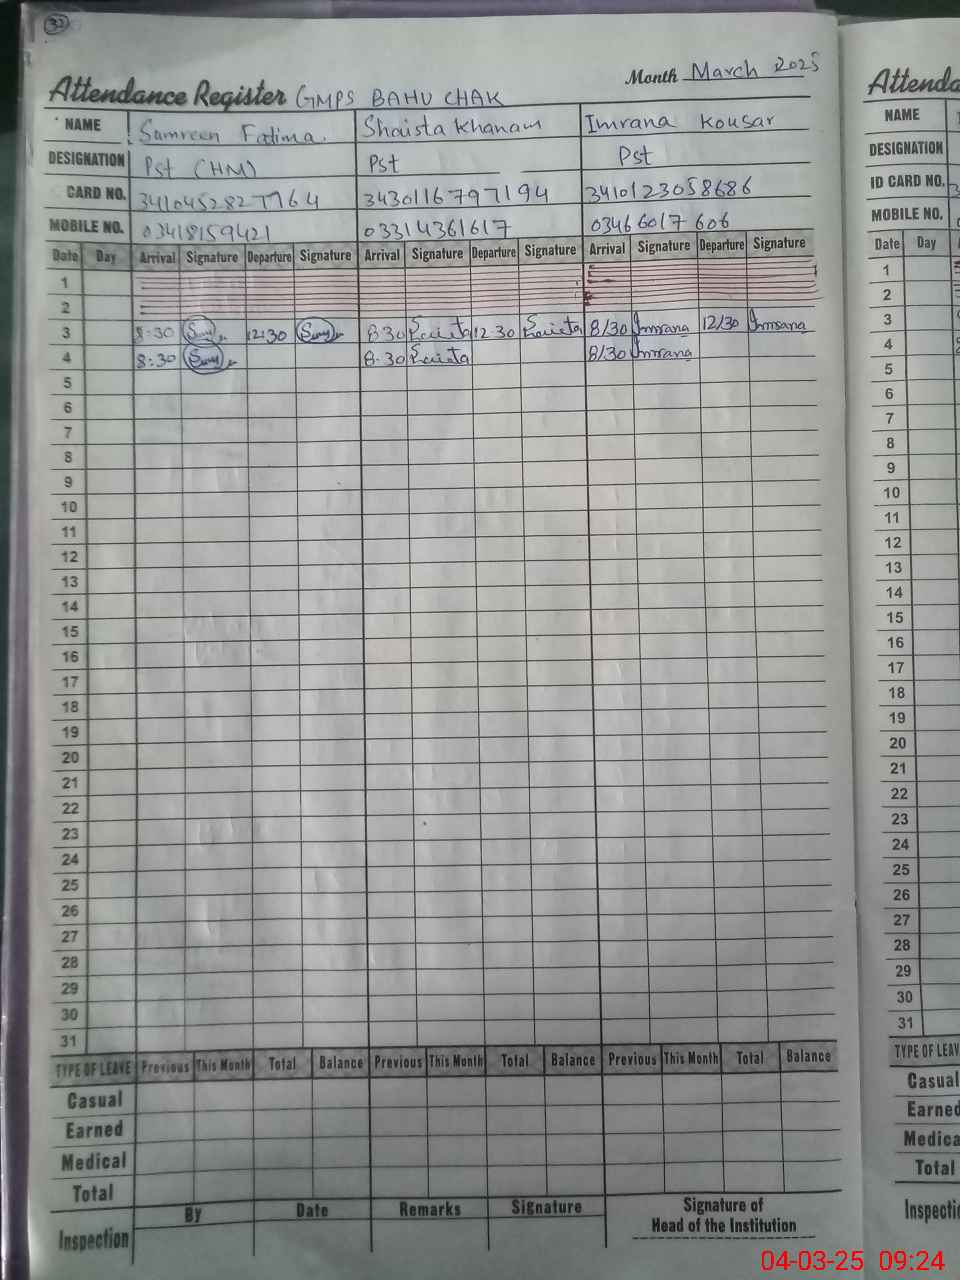 32
Month March 2025
Attendance Register GMPS BAHU CHAK
NAME Samreen Fatima. Shaista Khanam Imrana Kousar
DESIGNATION Pst (HM) Pst Pst
CARD NO. 3410452827764 3430116797194 3410123058686
MOBILE NO. 03418159421 03314361617 03466017606
Date Day Arrival Signature Departure Signature Arrival Signature Departure Signature Arrival Signature Departure Signature
1
2
3 8:30 12:30 8 30 Shaista 12 30 Shaista 8/30 Imrana 12/30 Imrana
4 8:30 8.30 Shaista 8/30 Imrana
5
6
7
8
9
10
11
12
13
14
15
16
17
18
19
20
21
22
23
24
25
26
27
28
29
30
31
TYPE OF LEAVE Previous This Month Total Balance Previous This Month Total Balance Previous This Month Total Balance
Casual
Earned
Medical
Total
Inspection By Date Remarks Signature Signature of
Head of the Institution
Attenda
NAME
DESIGNATION
ID CARD NO.
MOBILE NO.
Date Day
1
2
3
4
5
6
7
8
9
10
11
12
13
14
15
16
17
18
19
20
21
22
23
24
25
26
27
28
29
30
31
TYPE OF LEAV
Casual
Earned
Medica
Total
Inspecti
04-03-25 09:24